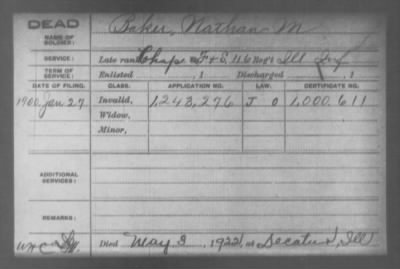 DEAD
NAME OF SOLDIER:
Baker, Nathan M
SERVICE:
Late rank Chap F & S, 116 Reg't Ill Inf
TERM OF SERVICE:
Enlisted , 1 Discharged , 1
DATE OF FILING. CLASS. APPLICATION NO. LAW. CERTIFICATE NO.
1900 Jan 27 Invalid, 1,243,276 J O 1,000,611
Widow,
Minor,
ADDITIONAL SERVICES:
REMARKS:
Died May 3, 1922, at Decatur, Ill